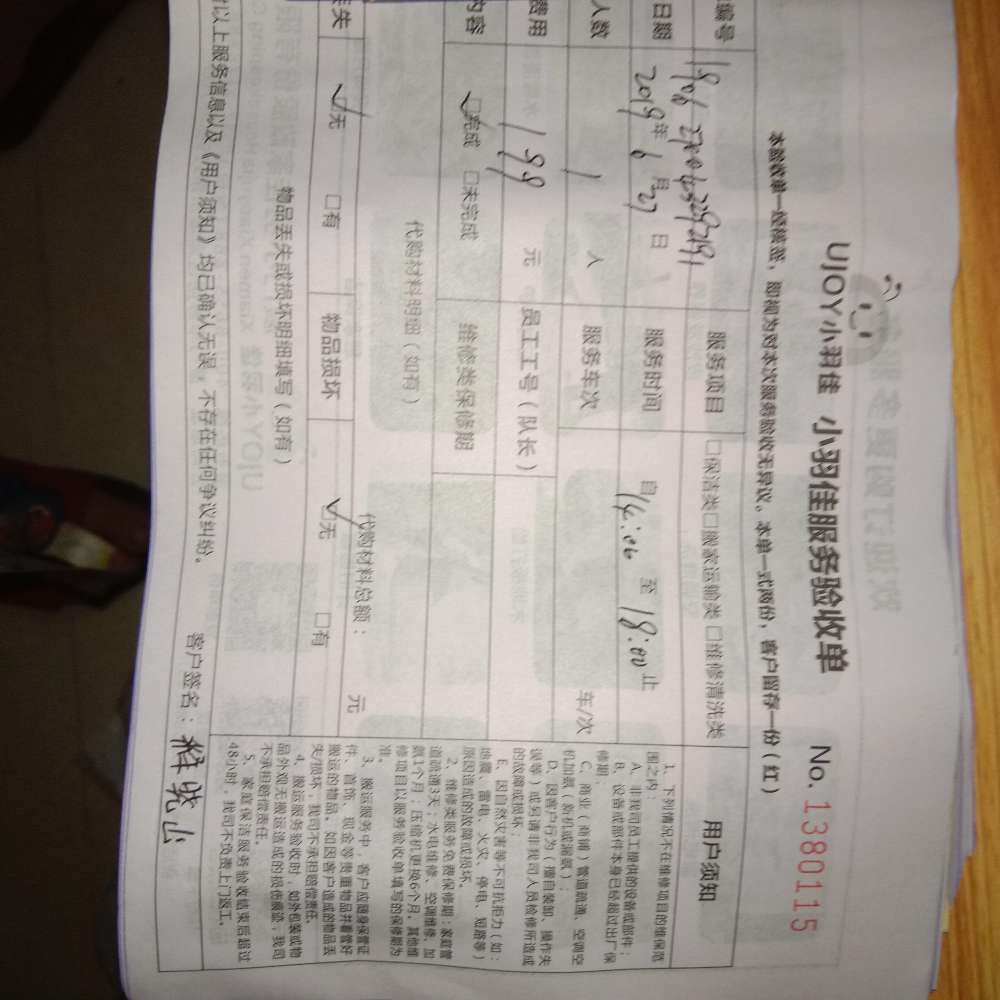 UJOY小羽佳 小羽佳服务验收单 No.1380115
本验收单一经核签，即视为对本次服务验收无异议。本单一式两份，客户留存一份（红）
编号 服务项目 □保洁类□搬家运输类□维修清洗类 用户须知
日期 2019年6月27日 服务时间 自14:06至18:00止
人数 1人 服务车次 车/次
费用 199元 员工工号（队长）
内容 ☑完成 □未完成 维修类保修期
代购材料明细（如有）
代购材料总额： 元
丢失 ☑无 □有 物品损坏 ☑无 □有
物品丢失或损坏明细填写（如有）
对以上服务信息以及《用户须知》均已确认无误，不存在任何争议纠纷。 客户签名：
1、下列情况不在维修项目的维保范
围之内：
A、非我司员工提供的设备或部件；
B、设备或部件本身已经超过出厂保
修期；
C、商业（商铺）管道疏通、空调空
机加氨（新机或漏氨）；
D、因客户行为（擅自装卸、操作失
误等）或另请非我司人员检修所造成
的故障或损坏；
E、因自然灾害等不可抗拒力（如：
地震、雷电、火灾、停电、短路等）
原因造成的故障或损坏。
2、维修类服务免费保修期：家庭管
道疏通3天；水电维修、空调维修、加
氨1个月；压缩机更换6个月。其他维
修项目以服务验收单填写的保修期为
准。
3、搬运服务中，客户应随身保管证
件、首饰、现金等贵重物品并看管好
搬运的物品。如因客户造成的物品丢
失/损坏，我司不承担赔偿责任。
4、搬运服务验收时，如外包装或物
品外观无搬运造成的损伤痕迹，我司
不承担赔偿责任。
5、家庭保洁服务验收结束后超过
48小时，我司不负责上门返工。